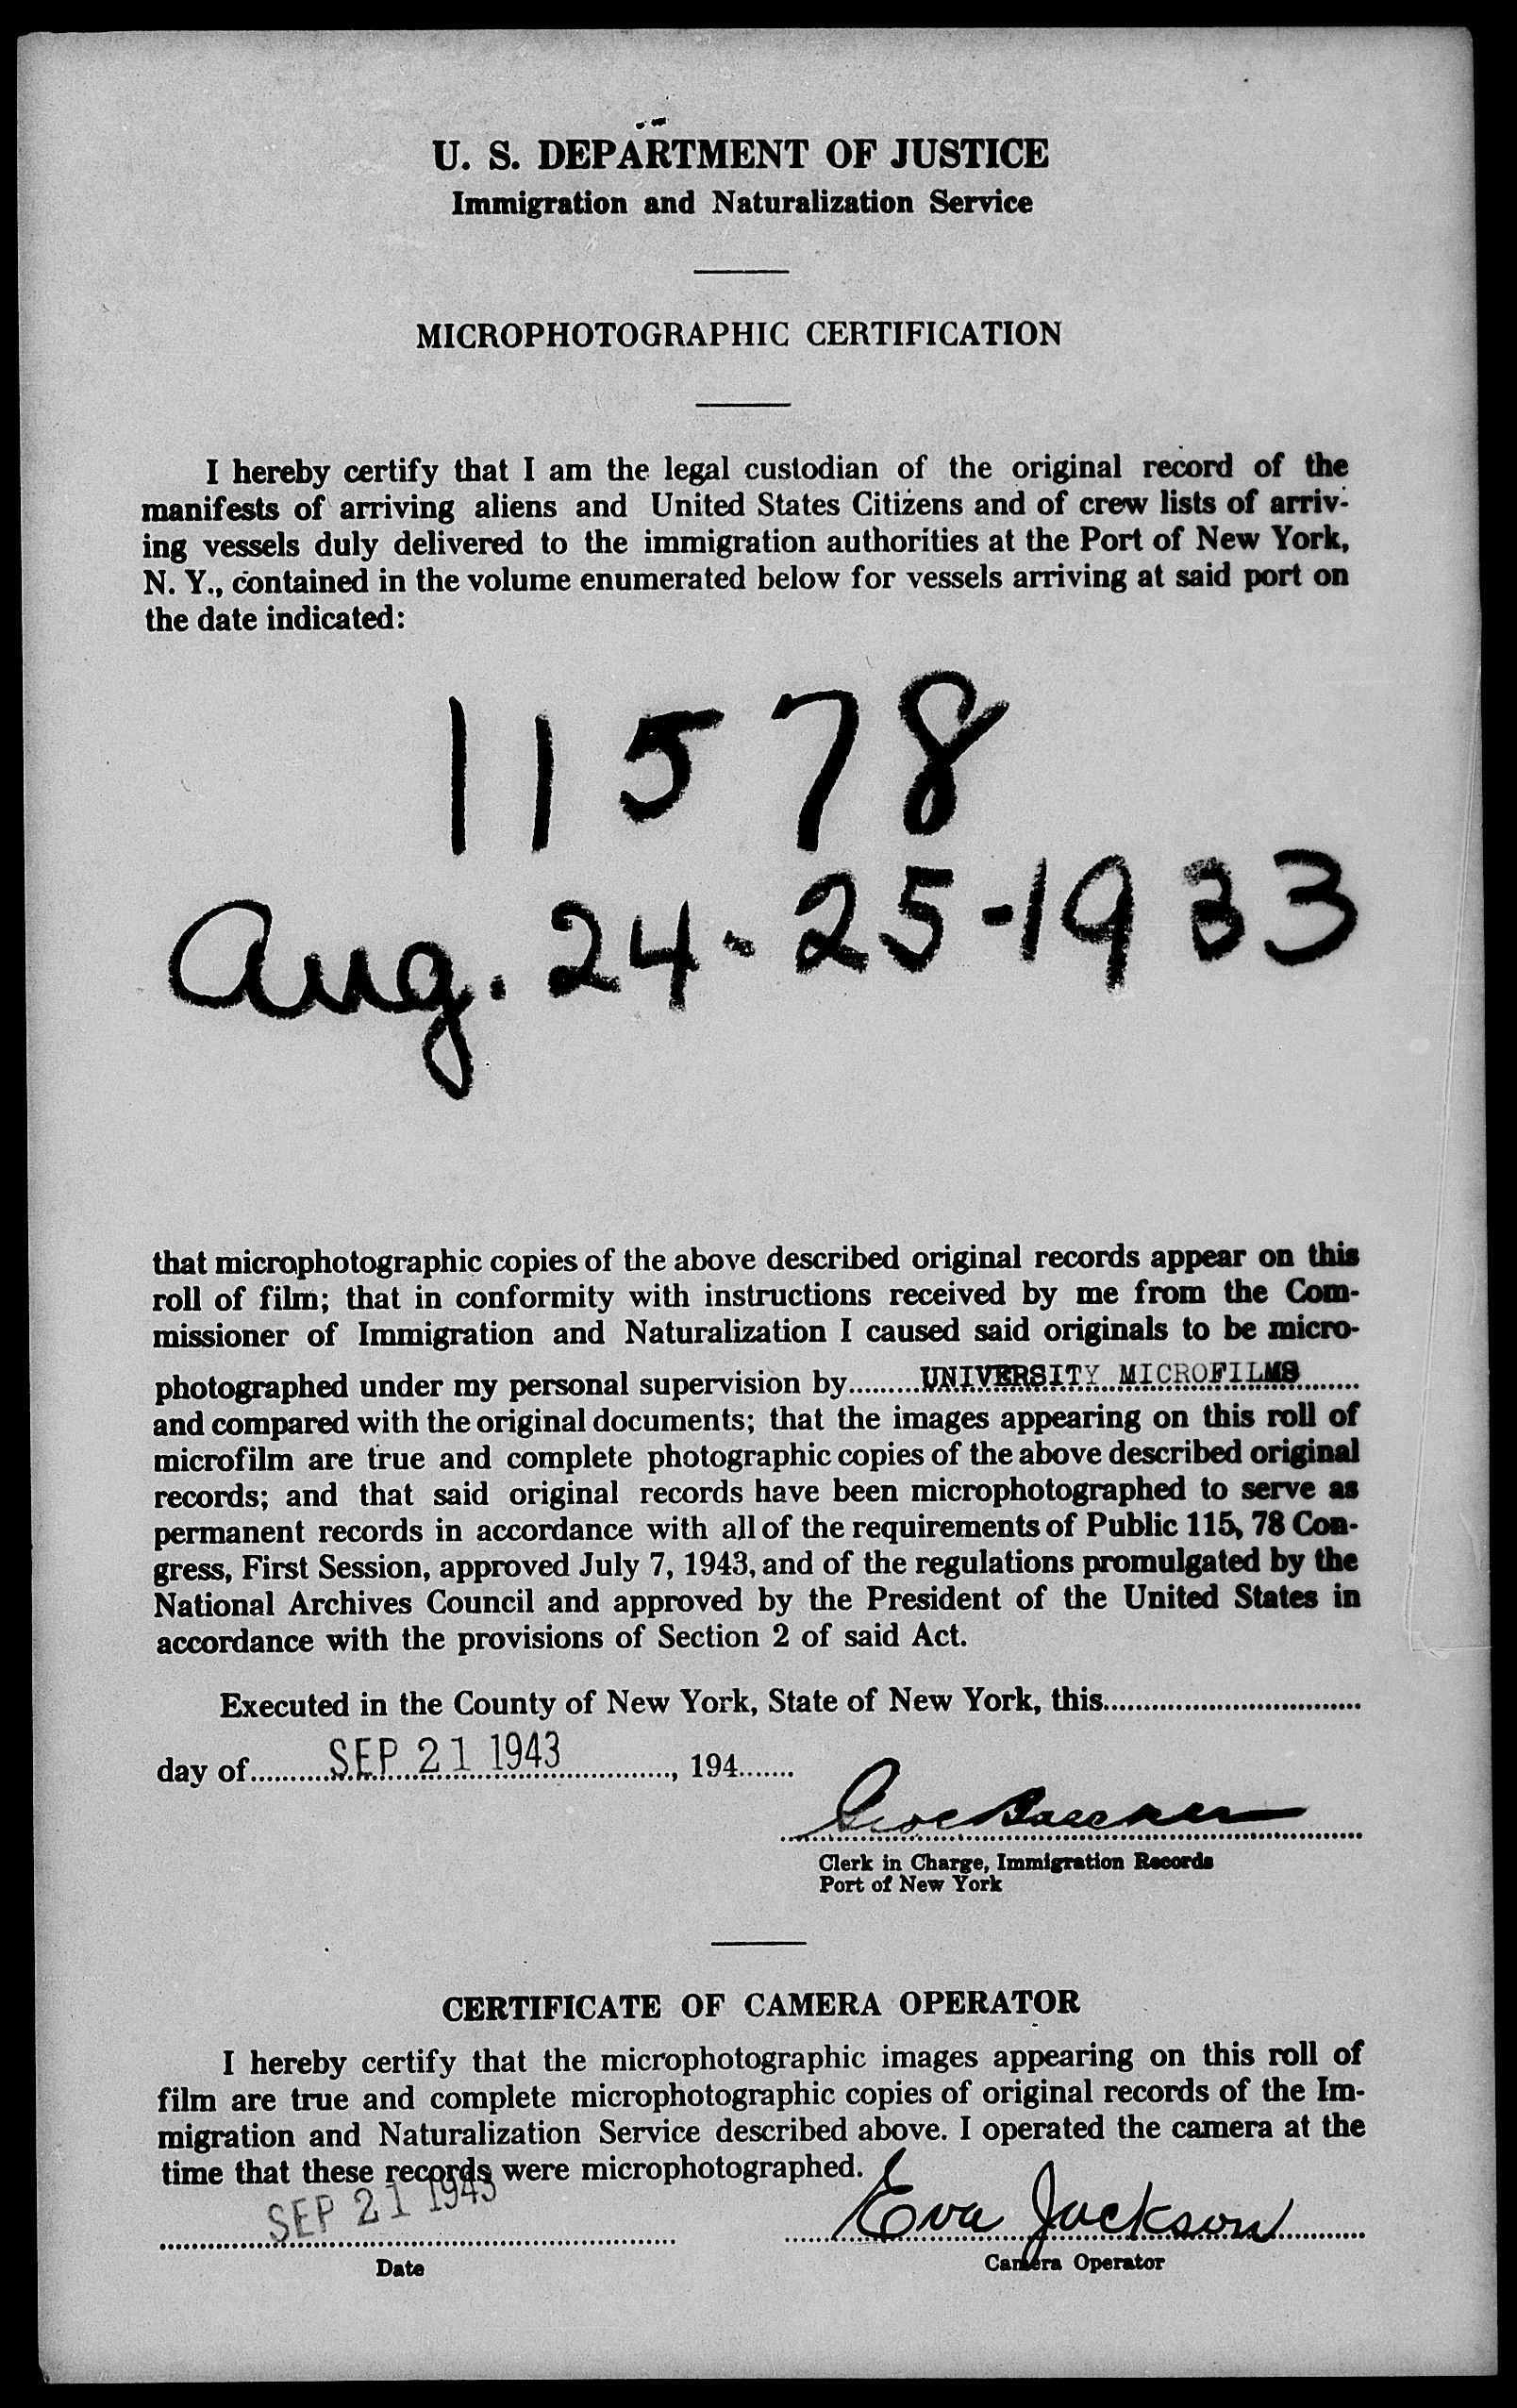 U. S. DEPARTMENT OF JUSTICE
Immigration and Naturalization Service
MICROPHOTOGRAPHIC CERTIFICATION
I hereby certify that I am the legal custodian of the original record of the
manifests of arriving aliens and United States Citizens and of crew lists of arriv-
ing vessels duly delivered to the immigration authorities at the Port of New York,
N. Y., contained in the volume enumerated below for vessels arriving at said port on
the date indicated:
11578
Aug. 24-25-1933
that microphotographic copies of the above described original records appear on this
roll of film; that in conformity with instructions received by me from the Com-
missioner of Immigration and Naturalization I caused said originals to be micro-
photographed under my personal supervision by.........UNIVERSITY MICROFILMS.......
and compared with the original documents; that the images appearing on this roll of
microfilm are true and complete photographic copies of the above described original
records; and that said original records have been microphotographed to serve as
permanent records in accordance with all of the requirements of Public 115, 78 Con-
gress, First Session, approved July 7, 1943, and of the regulations promulgated by the
National Archives Council and approved by the President of the United States in
accordance with the provisions of Section 2 of said Act.
Executed in the County of New York, State of New York, this................................
day of..........SEP 21 1943..............., 194.......
Clerk in Charge, Immigration Records
Port of New York
CERTIFICATE OF CAMERA OPERATOR
I hereby certify that the microphotographic images appearing on this roll of
film are true and complete microphotographic copies of original records of the Im-
migration and Naturalization Service described above. I operated the camera at the
time that these records were microphotographed.
SEP 21 1943 Eva Jackson
Date Camera Operator